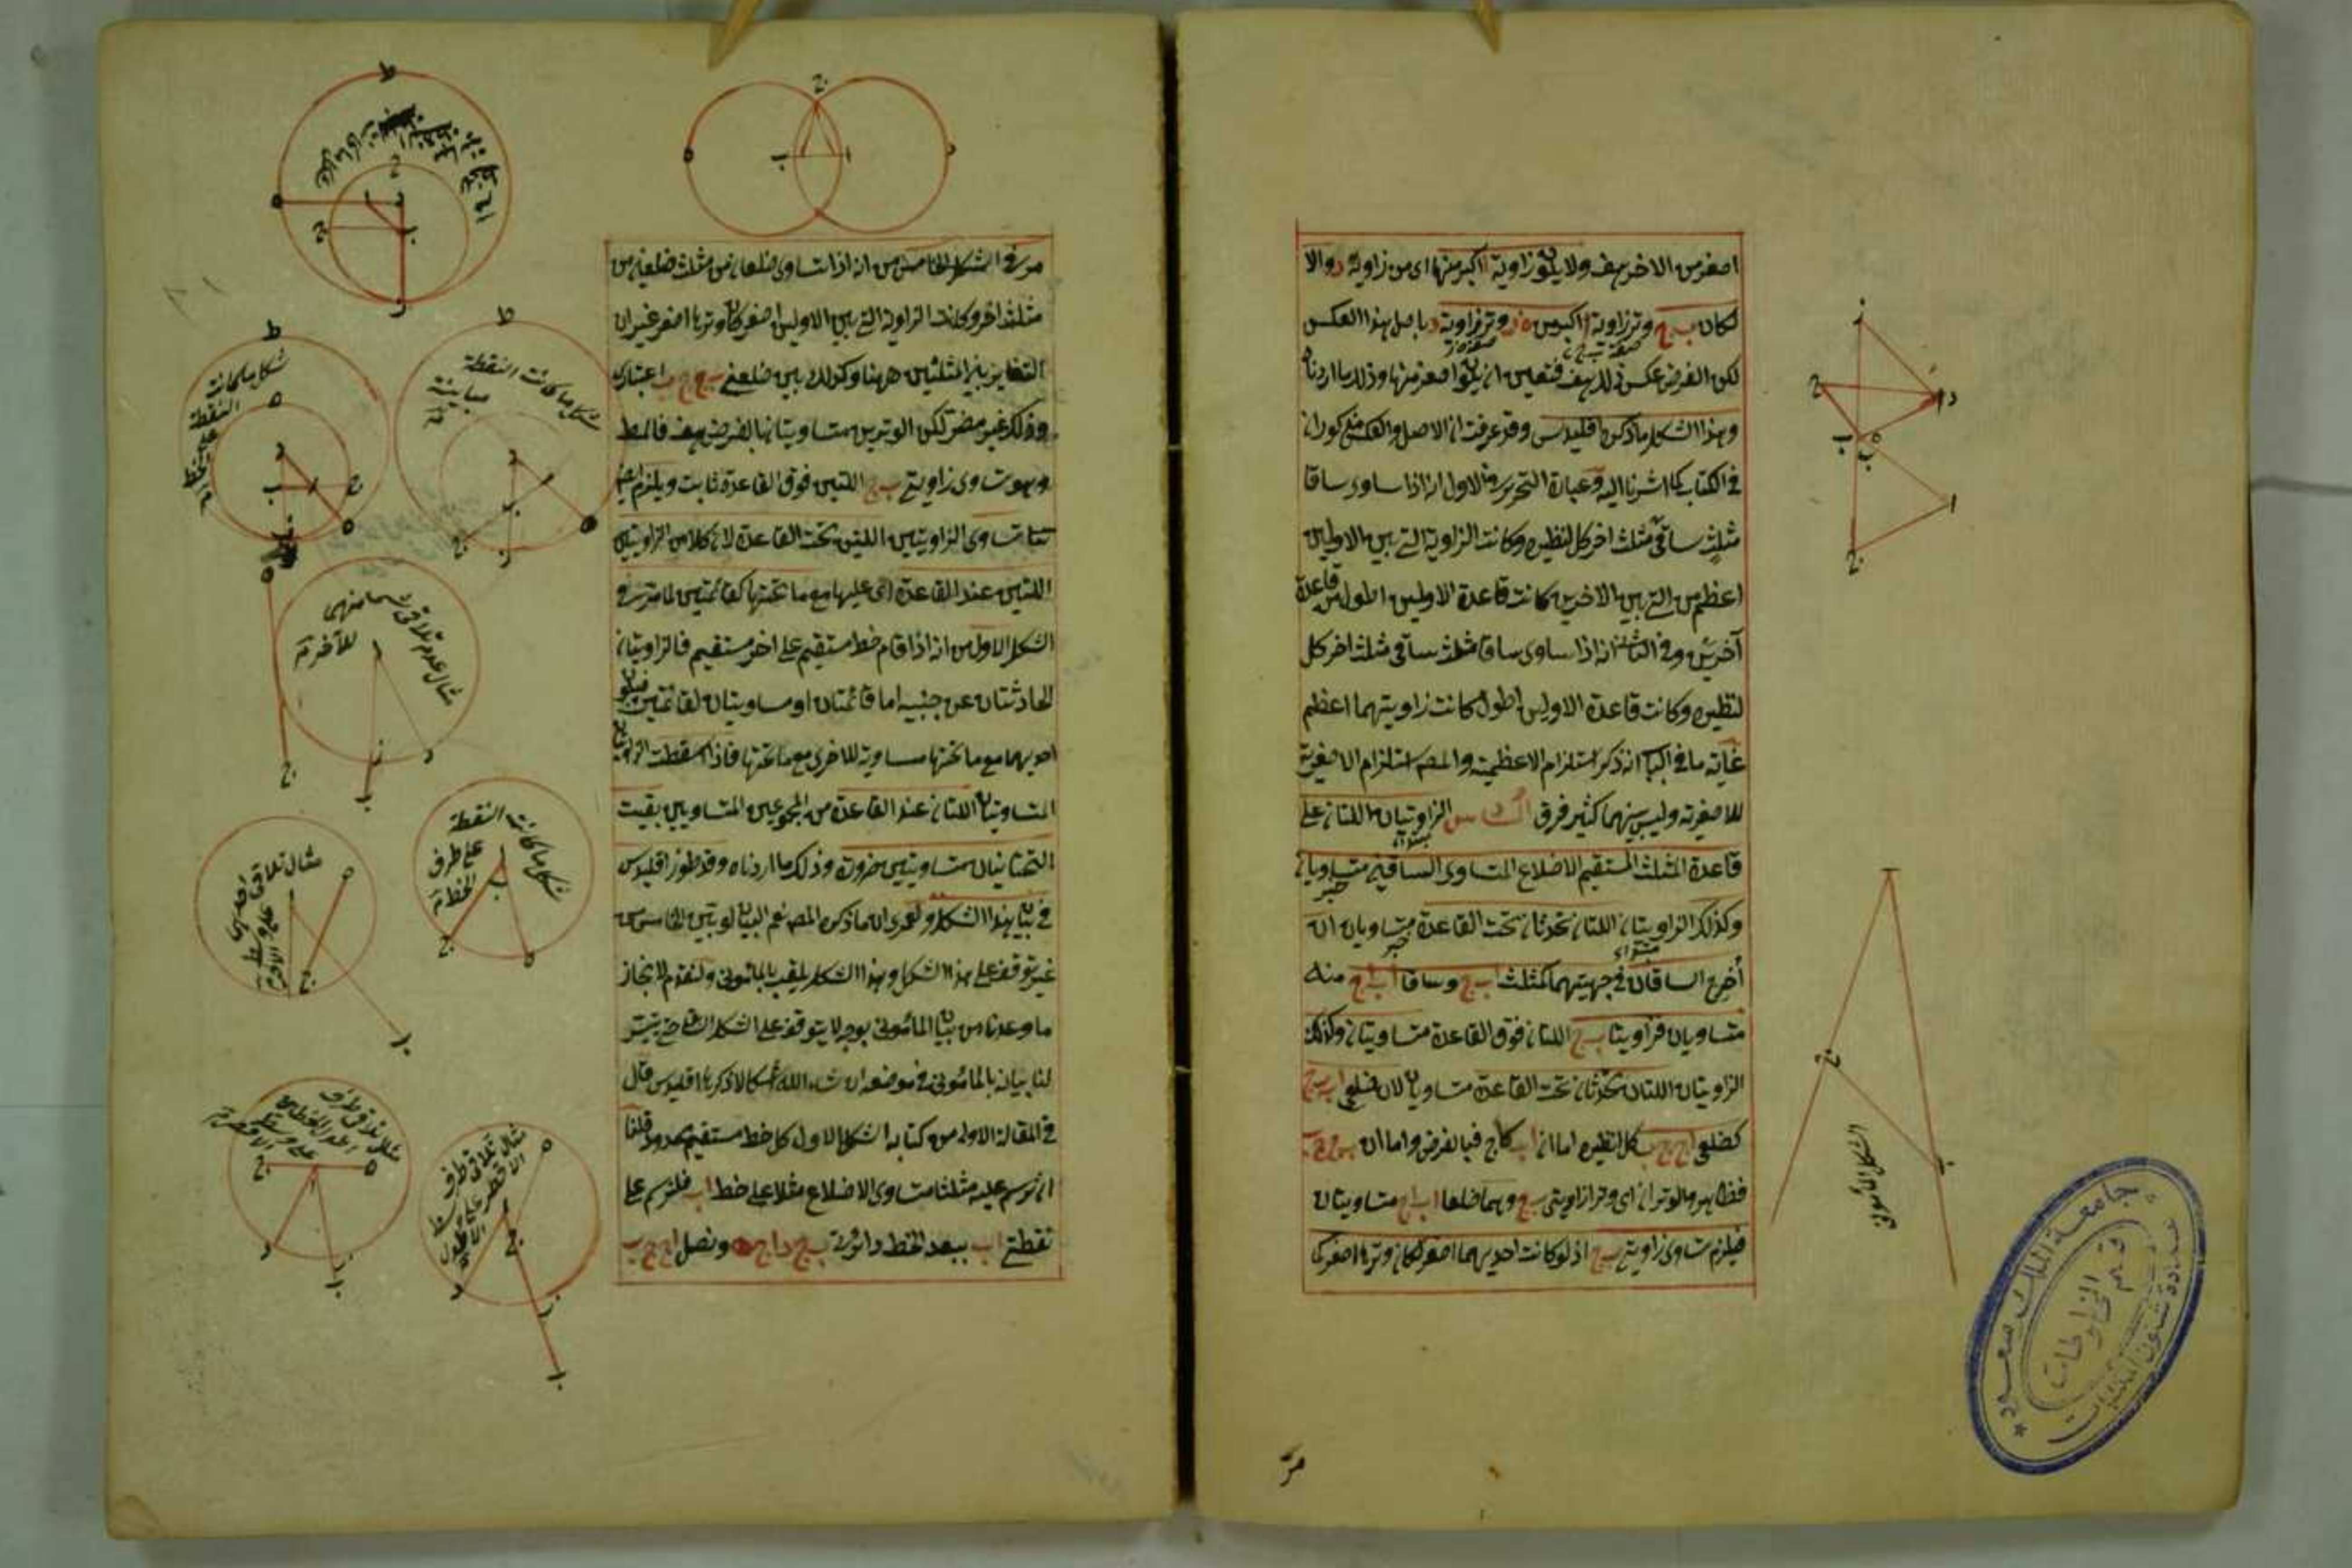 اصغر من الاخر هف ولا يكون زاوية ا اكبر منها اى من زاوية د والا
لكان ب ج وتر زاوية ا اكبر من ه ز وتر زاوية د باصل هذا العكس
لكن الفرض عكس ذلك هف فتعين ان يكون اصغر منها وذلك ما اردناه
وهذا الشكل ما ذكره اقليدس وقد عرفت ان الاصل والعكس مذكوران
فى الكتاب كما اشرنا اليه وعبارة التحرير فى الاول انه اذا ساوى ساقا
مثلث ساقى مثلث اخر كل لنظيره وكانت الزاوية التى بين الاولين
اعظم من التى بين الاخرين كانت قاعدة الاولين اطول من قاعدة
آخرين وفى الثانى انه اذا ساوى ساقا مثلث ساقى مثلث اخر كل
لنظيره وكانت قاعدة الاولين اطول كانت زاويتهما اعظم
غاية ما فى الباب انه ذكر استلزام الاعظمية والمص استلزام الاصغرية
للاصغرية وليس بينهما كثير فرق السادس الزاويتان اللتان على
قاعدة المثلث المستقيم الاضلاع المتساوى الساقين متساويتان
وكذلك الزاويتان اللتان تحدثان تحت القاعدة متساويتان ان
أخرج الساقان فى جهتيهما كمثلث ا ب ج وساقا ا ب ا ج منه
متساويان فزاويتا ب ج اللتان فوق القاعدة متساويتان وكذلك
الزاويتان اللتان تحدثان تحت القاعدة متساويتان لان ضلعى ا ب ب ج
كضلعى ا ج ج ب كل لنظيره اما ان ا ب كاج فبالفرض واما ان ب ج ج ب
فظاهر والوتران اى وترا زاويتى ب ج وهما ضلعا ا ب ا ج متساويتان
فيلزم تساوى زاويتى ب ج اذ لو كانت احديهما اصغر لكان وترها اصغر كما
الشكل المأمونى
مر
جامعة الملك سعود
قسم المخطوطات
عمادة شئون المكتبات
مر فى الشكل الخامس من انه اذا تساوى ضلعان من مثلث ضلعين من
مثلث اخر وكانت الزاوية التى بين الاولين اصغر كان وترها اصغر غير ان
التغاير بين المثلثين ههنا وكذلك بين ضلعى ب ج ج ب اعتبارى
وذلك غير مضر لكن الوترين متساويتان بالفرض هف فالمط
وهو تساوى زاويتى ب ج اللتين فوق القاعدة ثابت ويلزم ايضا
تساوى الزاويتين اللتين تحت القاعدة لان كلا من الزاويتين
اللتين عند القاعدة اى عليها مع ما تحتها كقائمتين لما مر فى
الشكل الاول من انه اذا قام خط مستقيم على اخر مستقيم فالزاويتان
الحادثتان عن جنبيه اما قائمتان او مساويتان لقائمتين فيكون
احديهما مع ما تحتها مساوية للاخرى مع ما تحتها فاذا اسقطت الزاويتان
المتساويتان اللتان عند القاعدة من المجموعين المتساويين بقيت
التحتانيتان متساويتين ضرورة وذلك ما اردناه وقد طول اقليدس
فى بيان هذا الشكل ولعمرى ان ما ذكره المص نعم البيان لو بيّن الخامس من
غير توقف على هذا الشكل وهذا الشكل يلقب بالمأمونى ولنقدم لانجاز
ما وعدنا من بيان المأمونى بوجه لا يتوقف على الشكل حتى يتيسر
لنا بيانه بالمأمونى فى موضعه ان شاء الله أشكالا ذكرها اقليدس قال
فى المقالة الاولى من كتابه الشكل الاول كل خط مستقيم محدود فلنا
ان نرسم عليه مثلثا متساوى الاضلاع مثلا على خط ا ب فلنرسم على
نقطتى ا ب ببعد الخط دائرتى ب ج د ا ج ه ونصل ا ج ج ب
شكل ما كانت النقطة على الخط
شكل ما كانت النقطة مباينة
مثال عدم تلاقى شئ منهما للآخر
شكل ما كانت النقطة على طرف الخط
مثال تلاقى طرف الاقصر على وسط الاطول
مثال تلاقى طرف اطول الخطين على وسط الاقصر